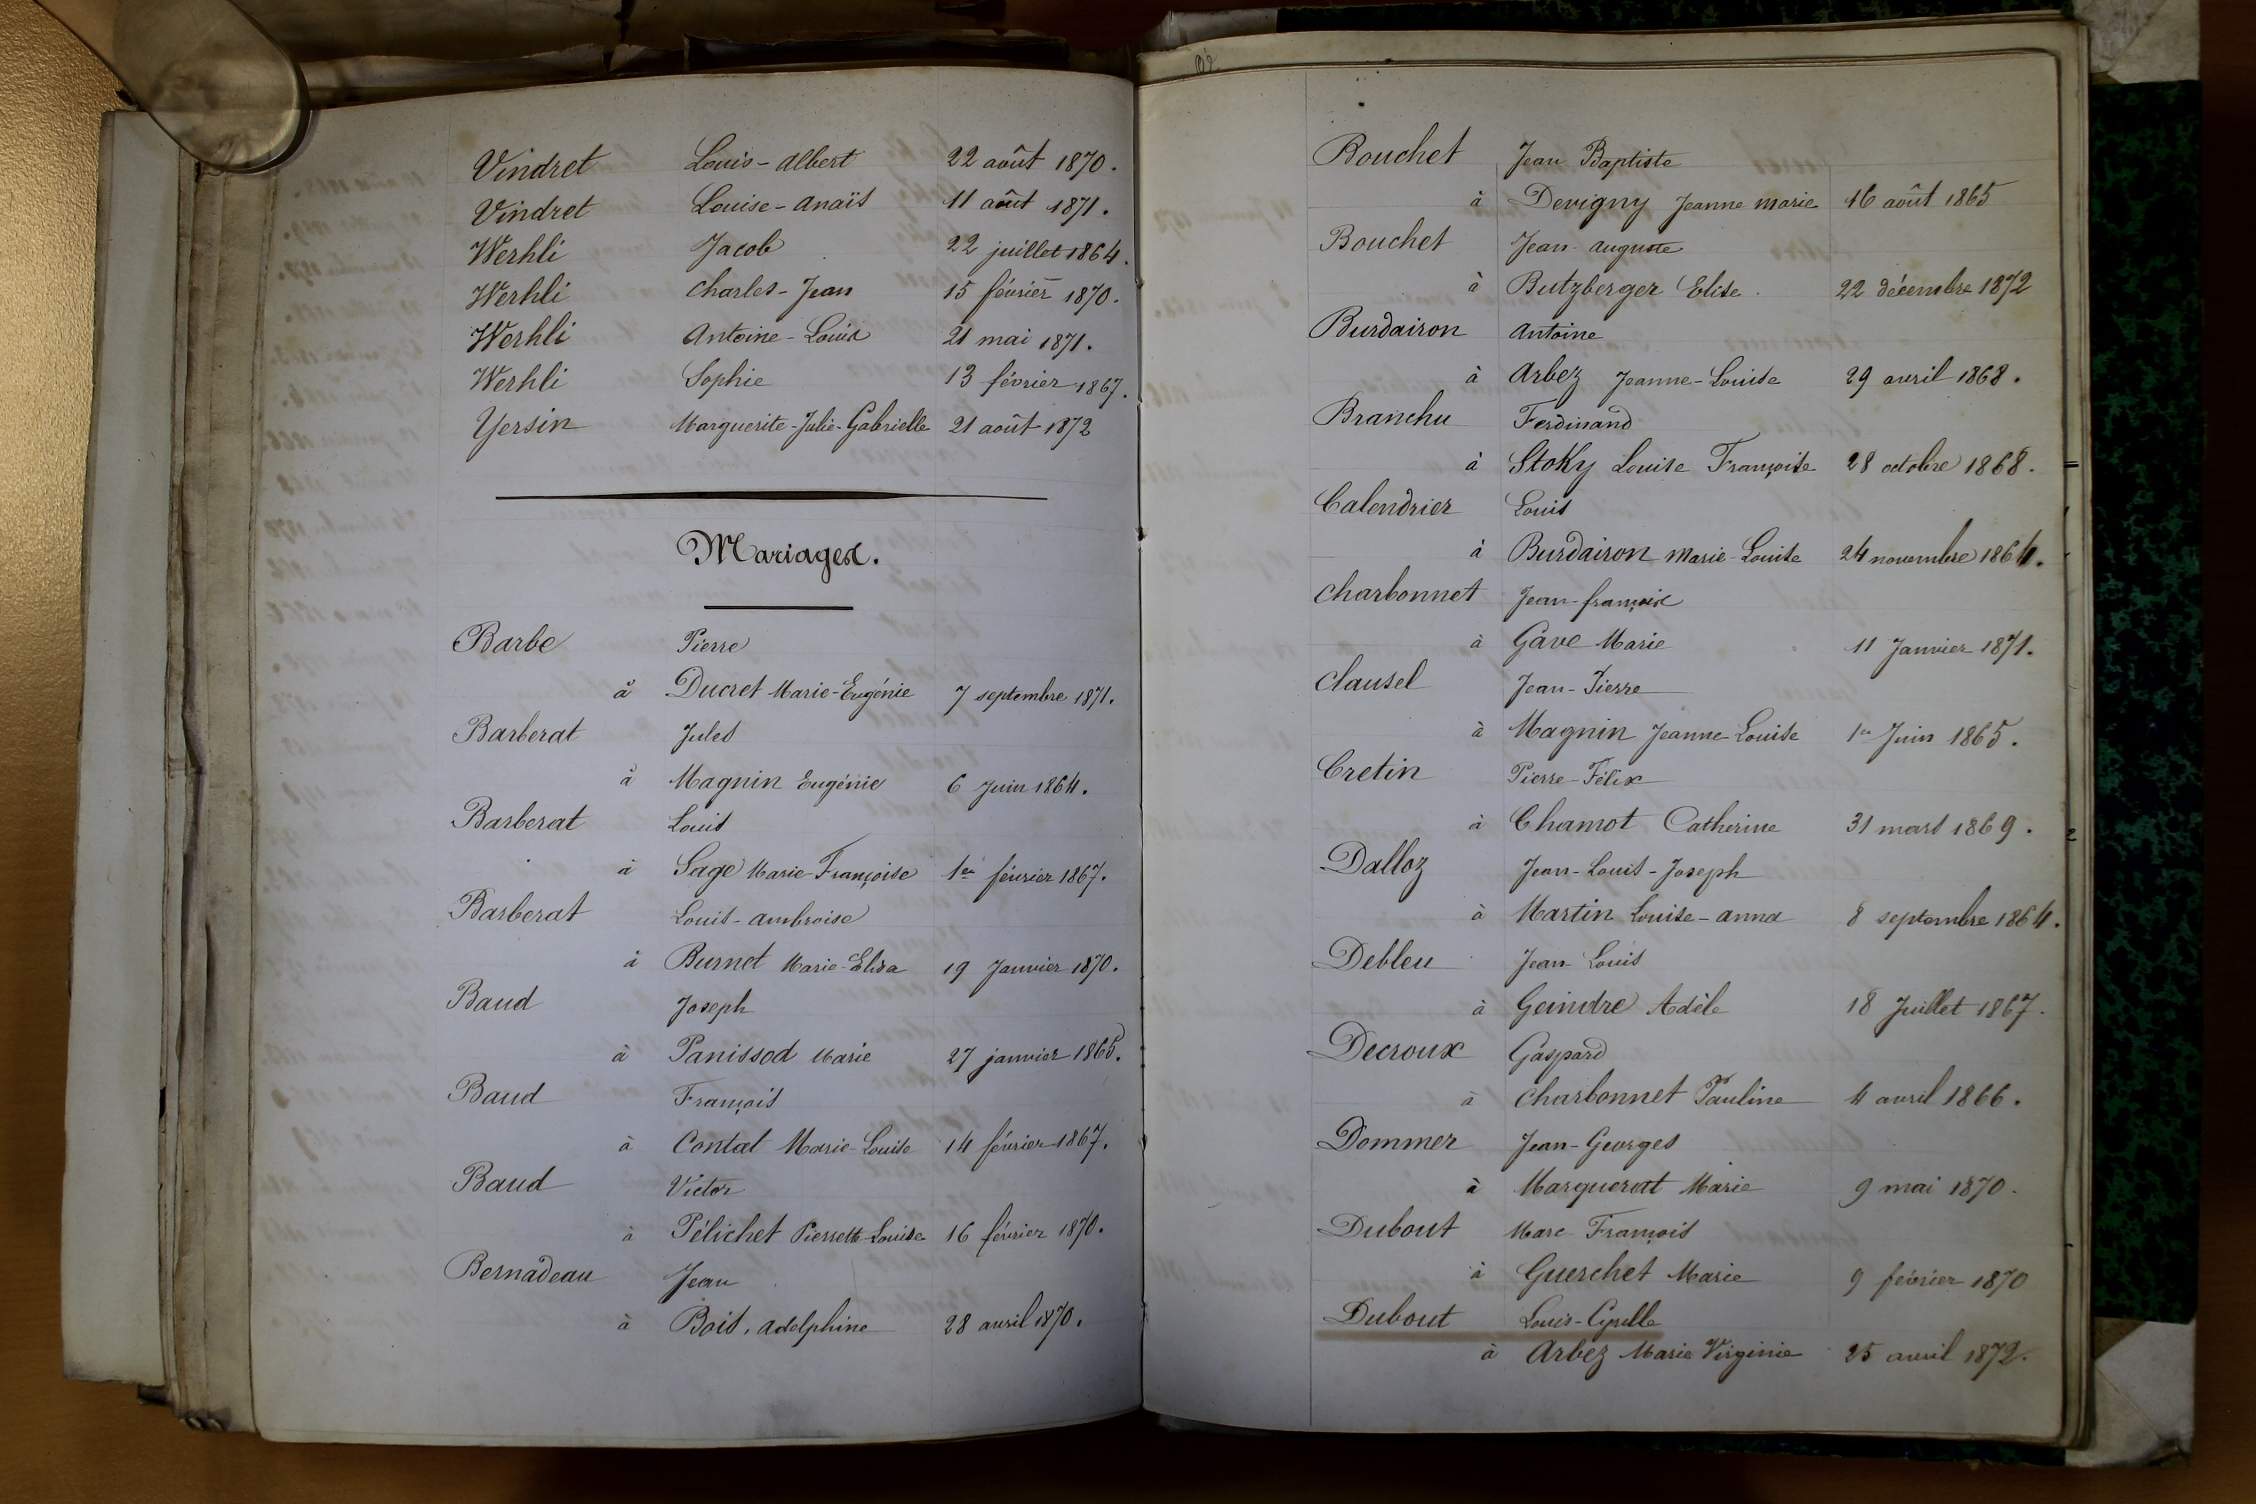 Vindret Louis-Albert 22 août 1870.
Vindret Louise-Anaïs 11 août 1871.
Werhli Jacob 22 juillet 1864.
Werhli Charles-Jean 15 février 1870.
Werhli Antoine-Louis 21 mai 1871.
Werhli Sophie 13 février 1867.
Yersin Marguerite-Julie-Gabrielle 21 août 1872
Mariages.
Barbe Pierre
à Ducret Marie-Eugénie 7 septembre 1871.
Barberat Jules
à Magnin Eugénie 6 Juin 1864.
Barberat Louis
à Sage Marie-Françoise 1er février 1867.
Barberat Louis-Ambroise
à Burnet Marie-Elisa 19 Janvier 1870.
Baud Joseph
à Panissod Marie 27 janvier 1865.
Baud François
à Contat Marie-Louise 14 février 1867.
Baud Victor
à Pélichet Pierrette-Louise 16 février 1870.
Bernadeau Jean
à Bois, Adelphine 28 avril 1870.
Bouchet Jean Baptiste
à Devigny Jeanne Marie 16 août 1865
Bouchet Jean Auguste
à Butzberger Elise. 22 décembre 1872
Burdairon Antoine
à Arbez Jeanne-Louise 29 avril 1868.
Branchu Ferdinand
à Stoky Louise Françoise 28 octobre 1868.
Calendrier Louis
à Burdairon Marie-Louise 24 novembre 1864.
Charbonnet Jean-françois
à Gave Marie 11 Janvier 1871.
Clausel Jean-Pierre
à Magnin Jeanne-Louise 1er Juin 1865.
Cretin Pierre-Félix
à Chamot Catherine 31 mars 1869.
Dalloz Jean-Louis-Joseph
à Martin Louise-Anna 8 septembre 1864.
Debleu Jean Louis
à Geindre Adèle 18 Juillet 1867.
Decroux Gaspard
à Charbonnet Pauline 4 avril 1866.
Dommer Jean-Georges
à Marguerat Marie 9 mai 1870.
Dubout Marc François
à Guerchet Marie 9 février 1870
Dubout Louis-Cyrille
à Arbez Marie Virginie 25 avril 1872.